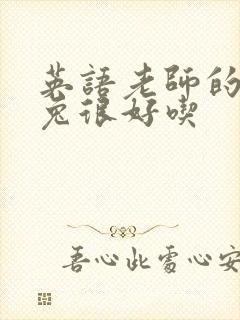 英語老師的
兔很好喫
吾心此處心安